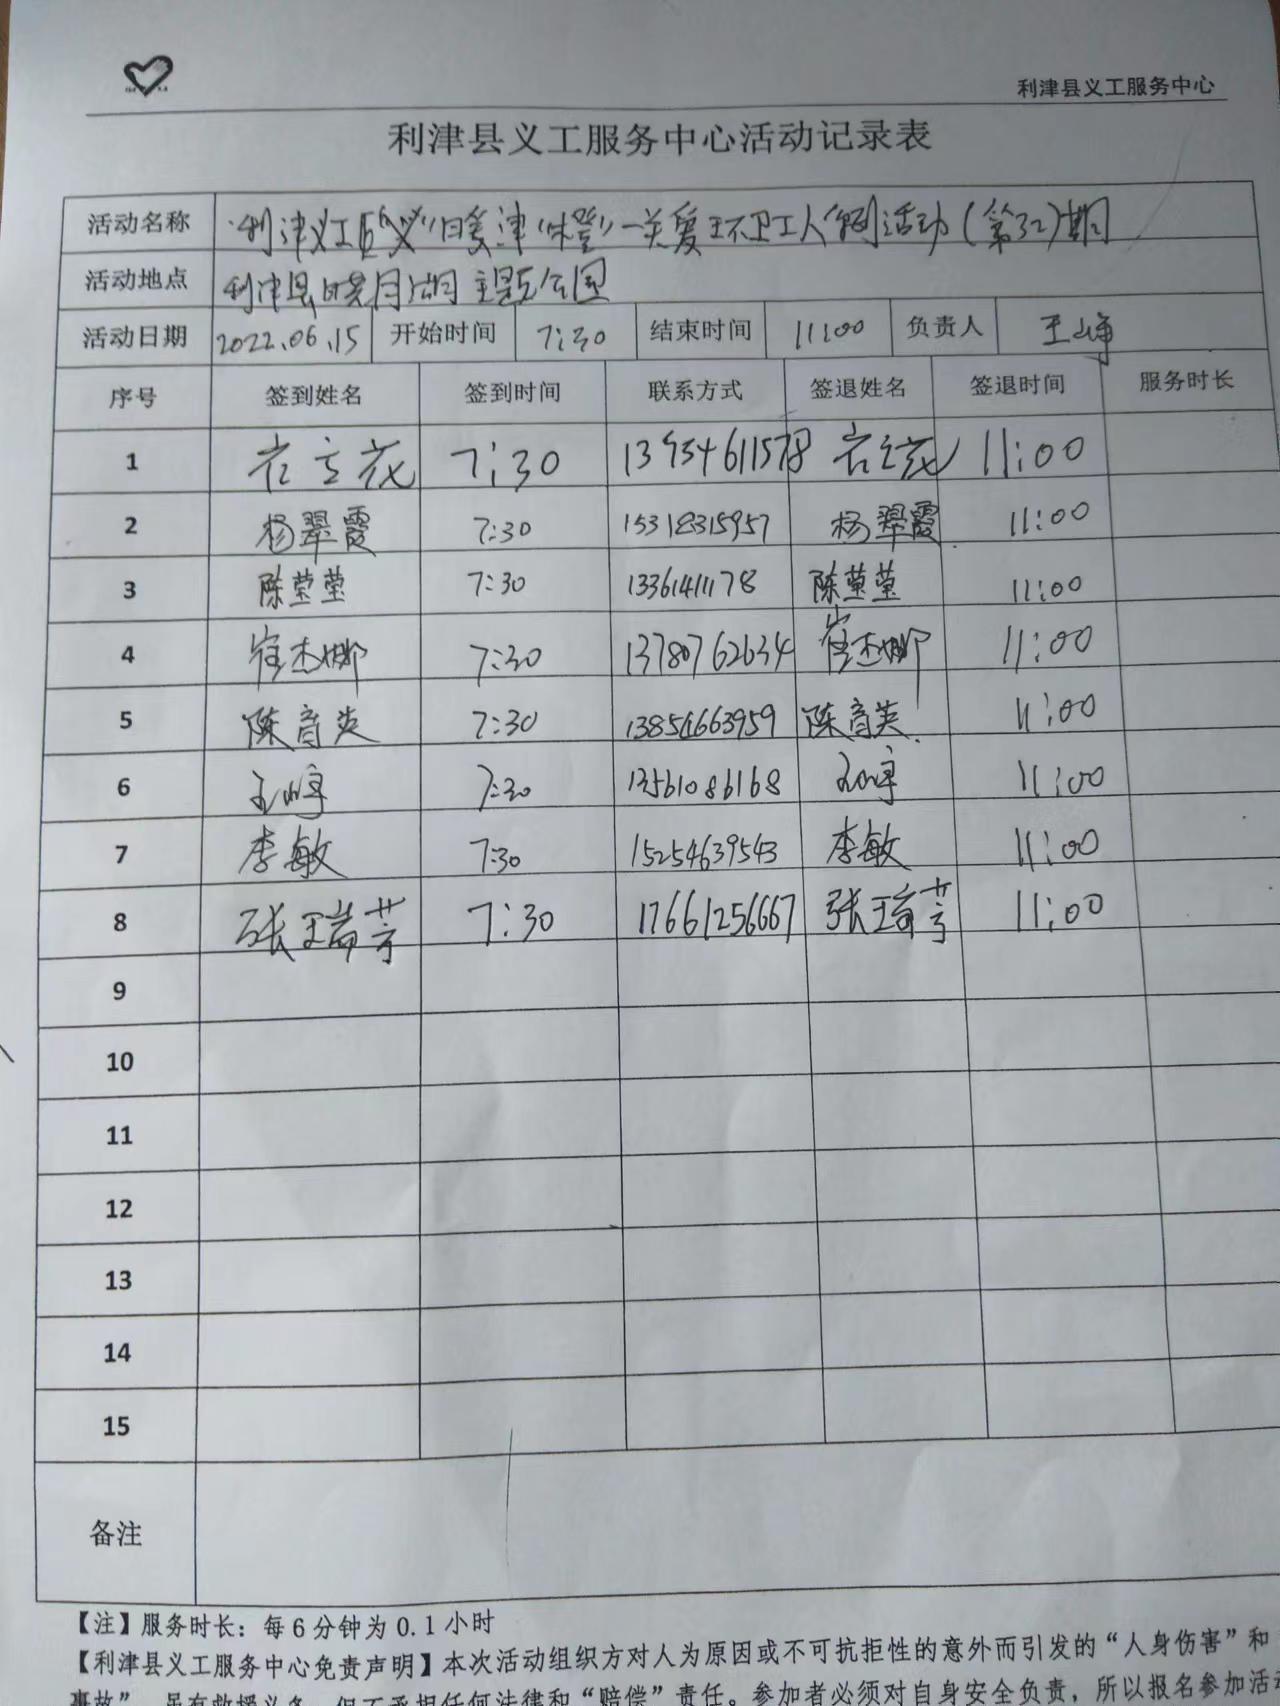 利津县义工服务中心
利津县义工服务中心活动记录表
活动名称 利津义工 暖津 一关爱环卫工人 活动(第32)期
活动地点 利津县晓月湖主题公园
活动日期 2022.06.15 开始时间 7:30 结束时间 11:00 负责人 王峥
序号 签到姓名 签到时间 联系方式 签退姓名 签退时间 服务时长
1 7:30 13954611578 11:00
2 杨翠霞 7:30 15318315957 杨翠霞 11:00
3 陈莹莹 7:30 13361411178 陈莹莹 11:00
4 崔杰娜 7:30 13780762634 崔杰娜 11:00
5 陈育英 7:30 13854663959 陈育英 11:00
6 王峥 7:30 13561086168 王峥 11:00
7 李敏 7:30 15254639543 李敏 11:00
8 张瑞芳 7:30 17661256667 张瑞芳 11:00
9
10
11
12
13
14
15
备注
【注】服务时长：每6分钟为0.1小时
【利津县义工服务中心免责声明】本次活动组织方对人为原因或不可抗拒性的意外而引发的“人身伤害”和
事故”，虽有救援义务，但不承担任何法律和“赔偿”责任。参加者必须对自身安全负责，所以报名参加活动